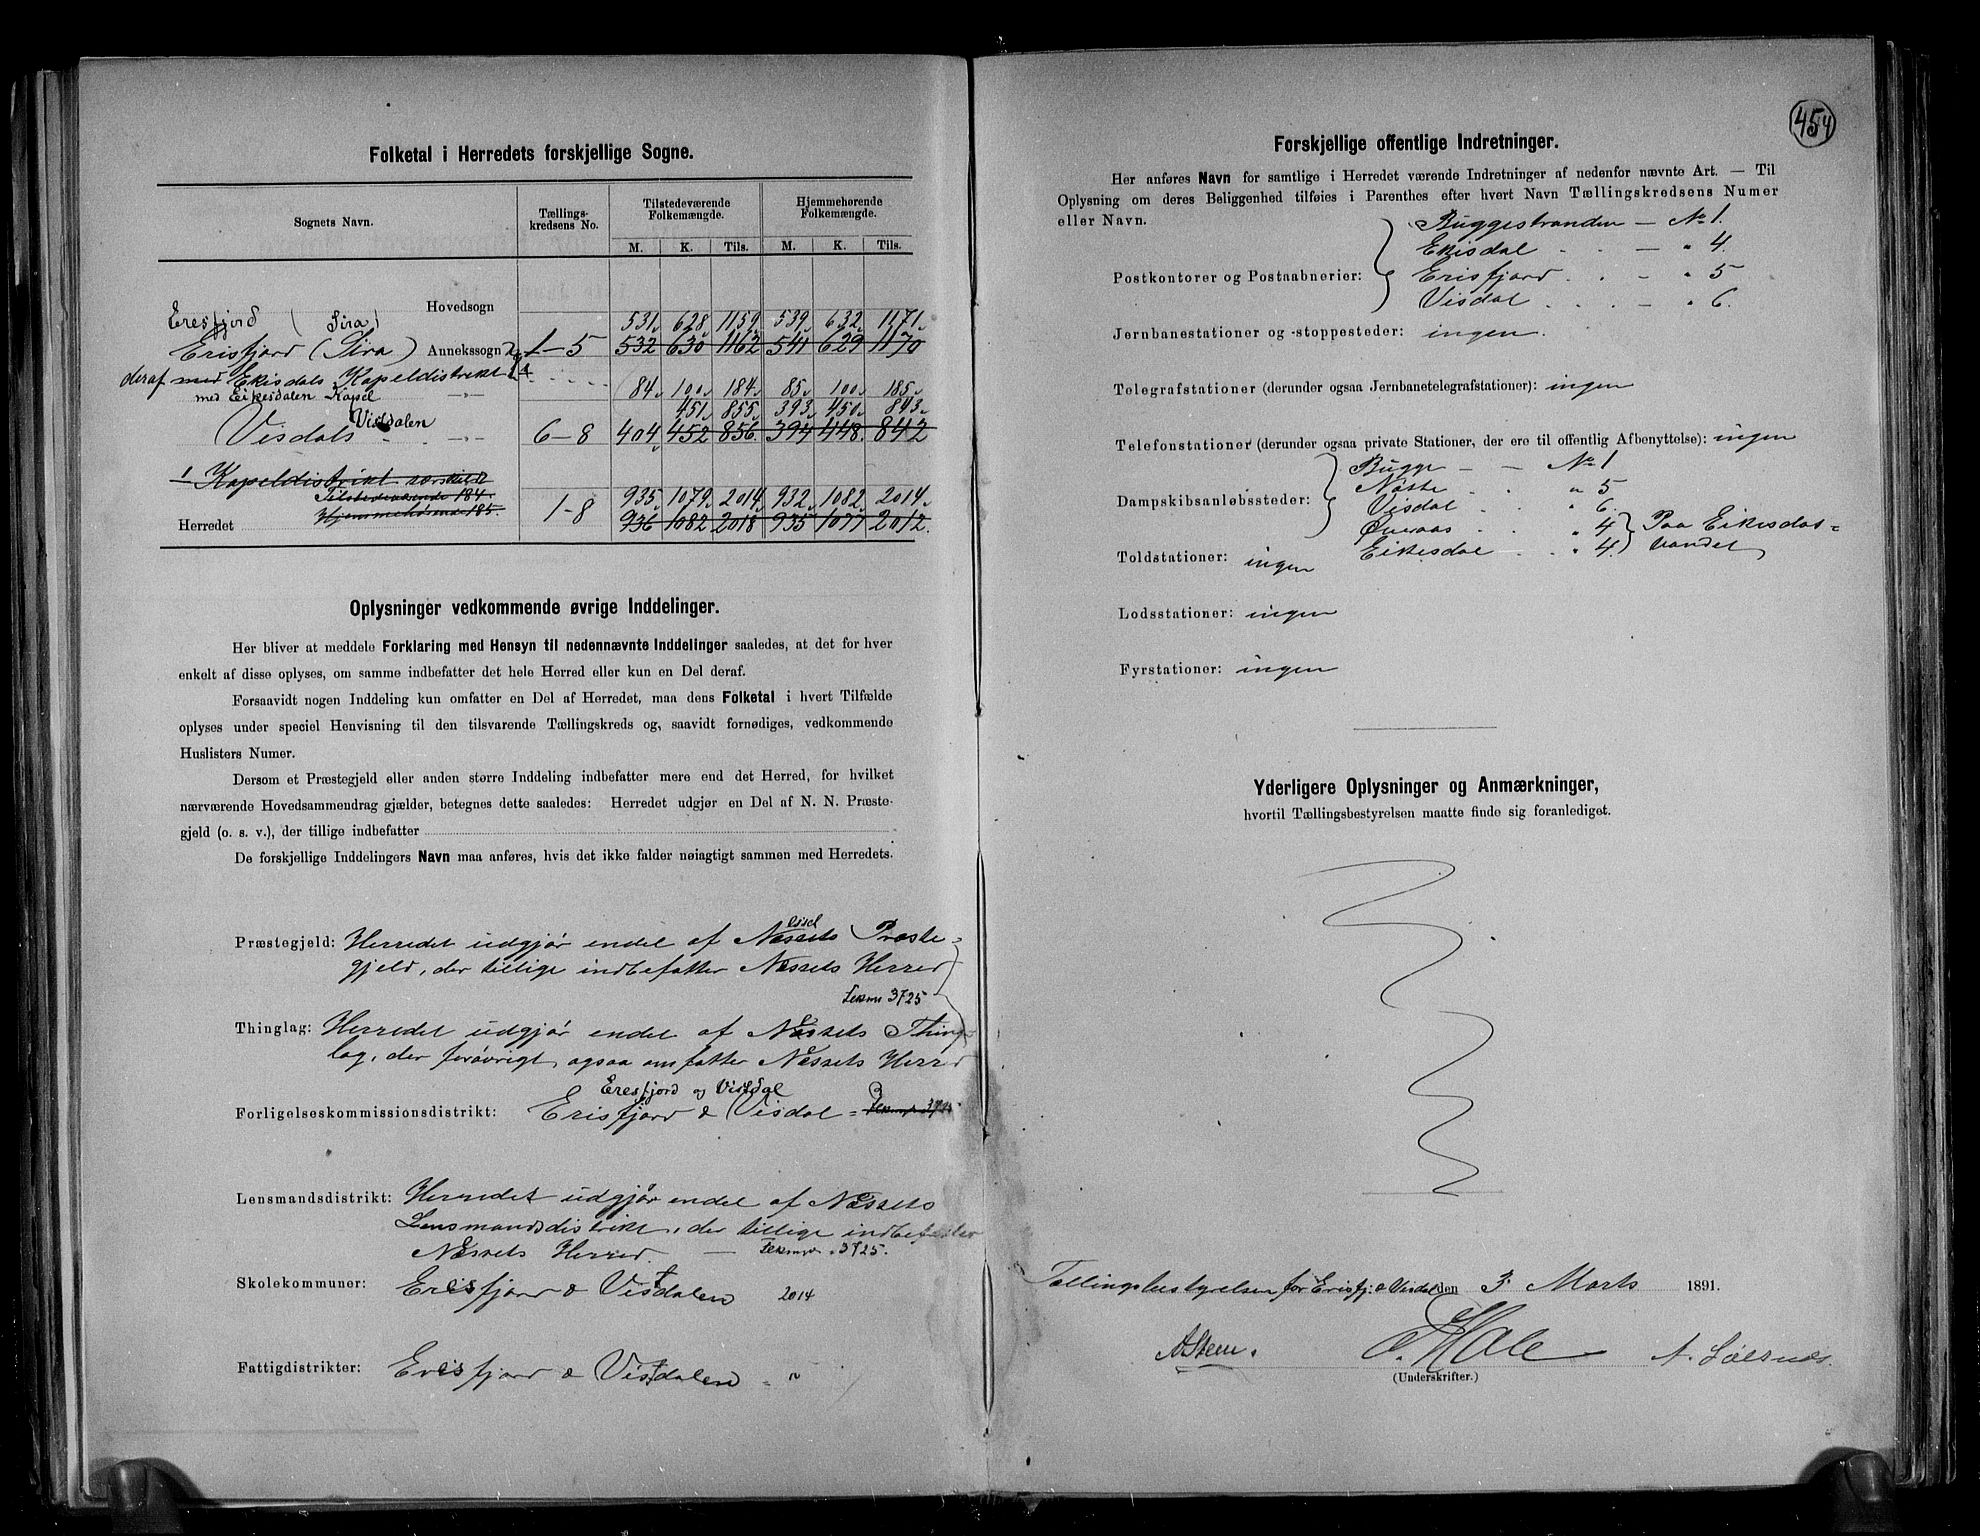 Folketal i Herredets forskjellige Sogne.
Sognets Navn. Tællings-kredsens No. Tilstedeværende Folkemængde. Hjemmehørende Folkemængde.
M. K. Tils. M. K. Tils.
Hovedsogn
Eresfjord (Sira) 531 628 1159 539 632 1171
Erisfjord (Sira) Annekssogn 1-5 532 630 1162 541 629 1170
deraf med Ekisdals Kapeldistrikt 84 100 184 85 100 185
med Eikesdalen Kapel
Vistdalen 451 855 393 450 843
Visdals 6-8 404 452 856 394 448 842
1 Kapeldistrikt særskildt
Tilstedeværende 184. 935 1079 2014 932 1082 2014
Hjemmehörende 185.
Herredet 1-8 936 1082 2018 935 1077 2012
Oplysninger vedkommende øvrige Inddelinger.
Her bliver at meddele Forklaring med Hensyn til nedennævnte Inddelinger saaledes, at det for hver
enkelt af disse oplyses, om samme indbefatter det hele Herred eller kun en Del deraf.
Forsaavidt nogen Inddeling kun omfatter en Del af Herredet, maa dens Folketal i hvert Tilfælde
oplyses under speciel Henvisning til den tilsvarende Tællingskreds og, saavidt fornødiges, vedkommende
Huslisters Numer.
Dersom et Præstegjeld eller anden større Inddeling indbefatter mere end det Herred, for hvilket
nærværende Hovedsammendrag gjælder, betegnes dette saaledes: Herredet udgjør en Del af N. N. Præste-
gjeld (o. s. v.), der tillige indbefatter
De forskjellige Inddelingers Navn maa anføres, hvis det ikke falder nøiagtigt sammen med Herredets.
Præstegjeld: Herredet udgjør endel af Næssets Præste-
gjeld, der tillige indbefatter Næssets Herred
3725
Thinglag: Herredet udgjør endel af Næssets Thing-
lag, der forövrigt ogsaa omfatter Næssets Herred
Eresfjord og Vistdal
Forligelseskommissionsdistrikt: Erisfjord & Visdal
Lensmandsdistrikt: Herredet udgjør endel af Næssets
Lensmandsdistrikt, der tillige indbefatter
Næssets Herred 3725.
Skolekommuner: Eresfjord & Vistdalen 2014
Fattigdistrikter: Eresfjord & Vistdalen "
454
Forskjellige offentlige Indretninger.
Her anføres Navn for samtlige i Herredet værende Indretninger af nedenfor nævnte Art. — Til
Oplysning om deres Beliggenhed tilføies i Parenthes efter hvert Navn Tællingskredsens Numer
eller Navn.
Buggestranden — No 1.
Ekisdal — " 4
Postkontorer og Postaabnerier: Erisfjord - " 5
Visdal " 6.
Jernbanestationer og -stoppesteder: ingen.
Telegrafstationer (derunder ogsaa Jernbanetelegrafstationer): ingen
Telefonstationer (derunder ogsaa private Stationer, der ere til offentlig Afbenyttelse): ingen
Bugge — No 1
Nöste " 5
Dampskibsanløbssteder: Visdal " 6.
Överaas " 4 Paa Eikisdals-
Eikisdal " 4. vandet
Toldstationer: ingen
Lodsstationer: ingen
Fyrstationer: ingen
Yderligere Oplysninger og Anmærkninger,
hvortil Tællingsbestyrelsen maatte finde sig foranlediget.
Tællingsbestyrelsen for Erisfj. & Visdal den 3. Marts 1891.
(Underskrifter.)